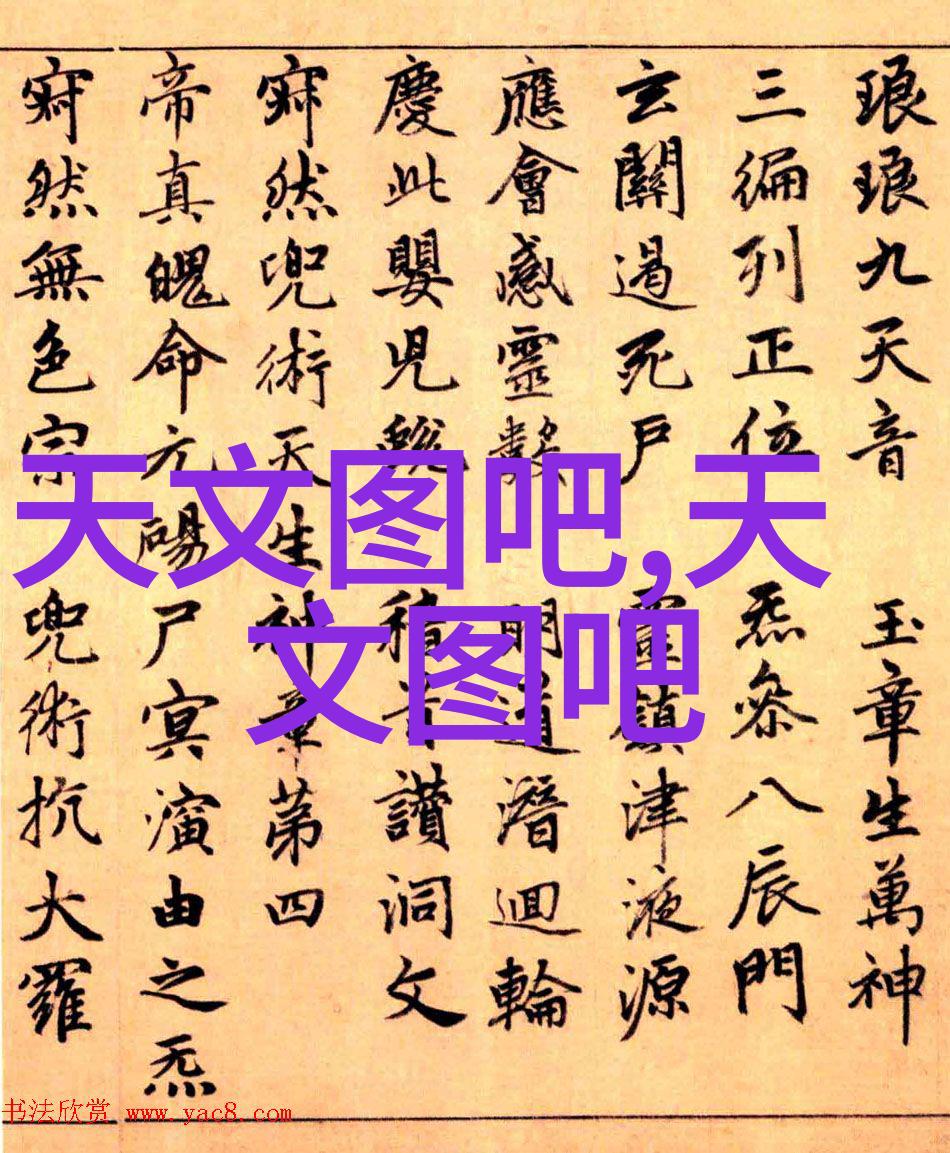 琅琅九天音 玉章生萬神
三編列正位 炁參八辰門
玄關遏死戶 靈鎮津液源
應會感靈數 明道潛迴輪
慶此嬰兒 積章讚洞文
寂然兜術天生神章第四
帝真 命元 尸冥演由之炁
寂然無色宗 兜術抗大羅
天文图吧,天
文图吧
书法欣赏 www.yac8.com